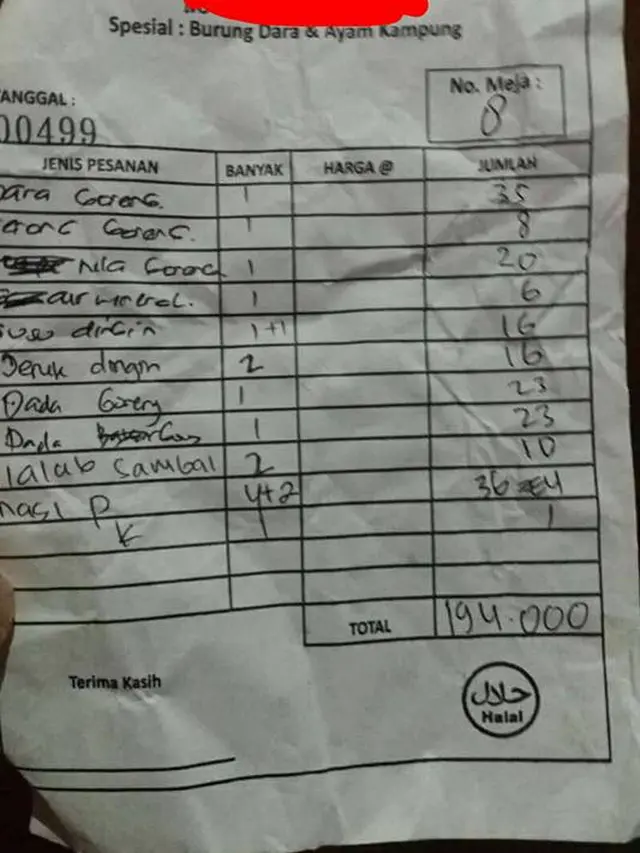 Spesial : Burung Dara & Ayam Kampung
No. Meja :
8
ANGGAL :
00499
JENIS PESANAN BANYAK HARGA @ JUMLAH
Dara Goreng. 1 35
erong Goreng. 1 8
Nila Goreng 1 20
air mineral. 1 6
susu dingin 1+1 16
Jeruk dingin 2 16
Dada Goreng 1 23
Dada 1 23
lalab sambal 2 10
nasi P 4+2 36
K 1 1
TOTAL 194.000
Terima Kasih
حلال
Halal